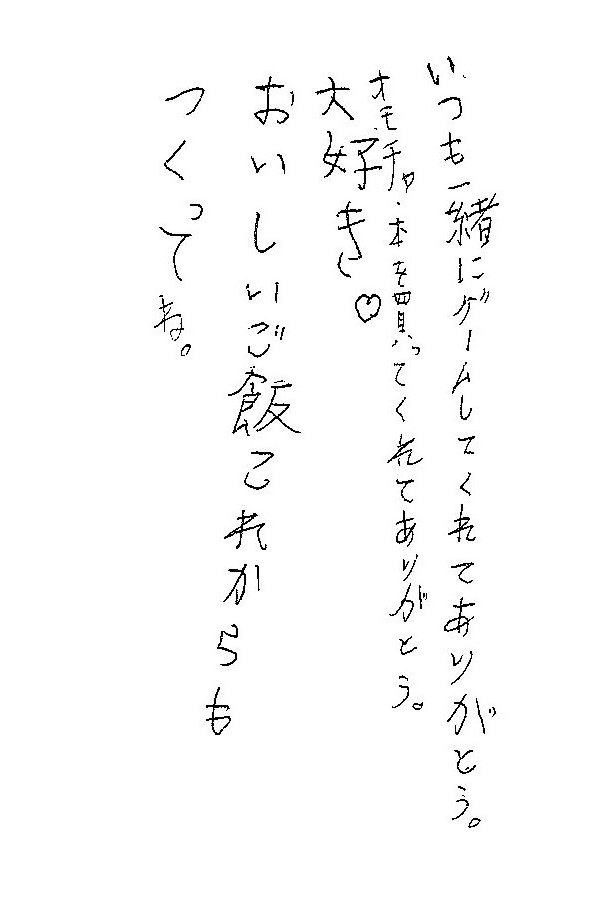 いつも一緒にゲームしてくれてありがとう。
オモチャ・本を買ってくれてありがとう。
大好き♡
おいしいご飯これからも
つくってね。